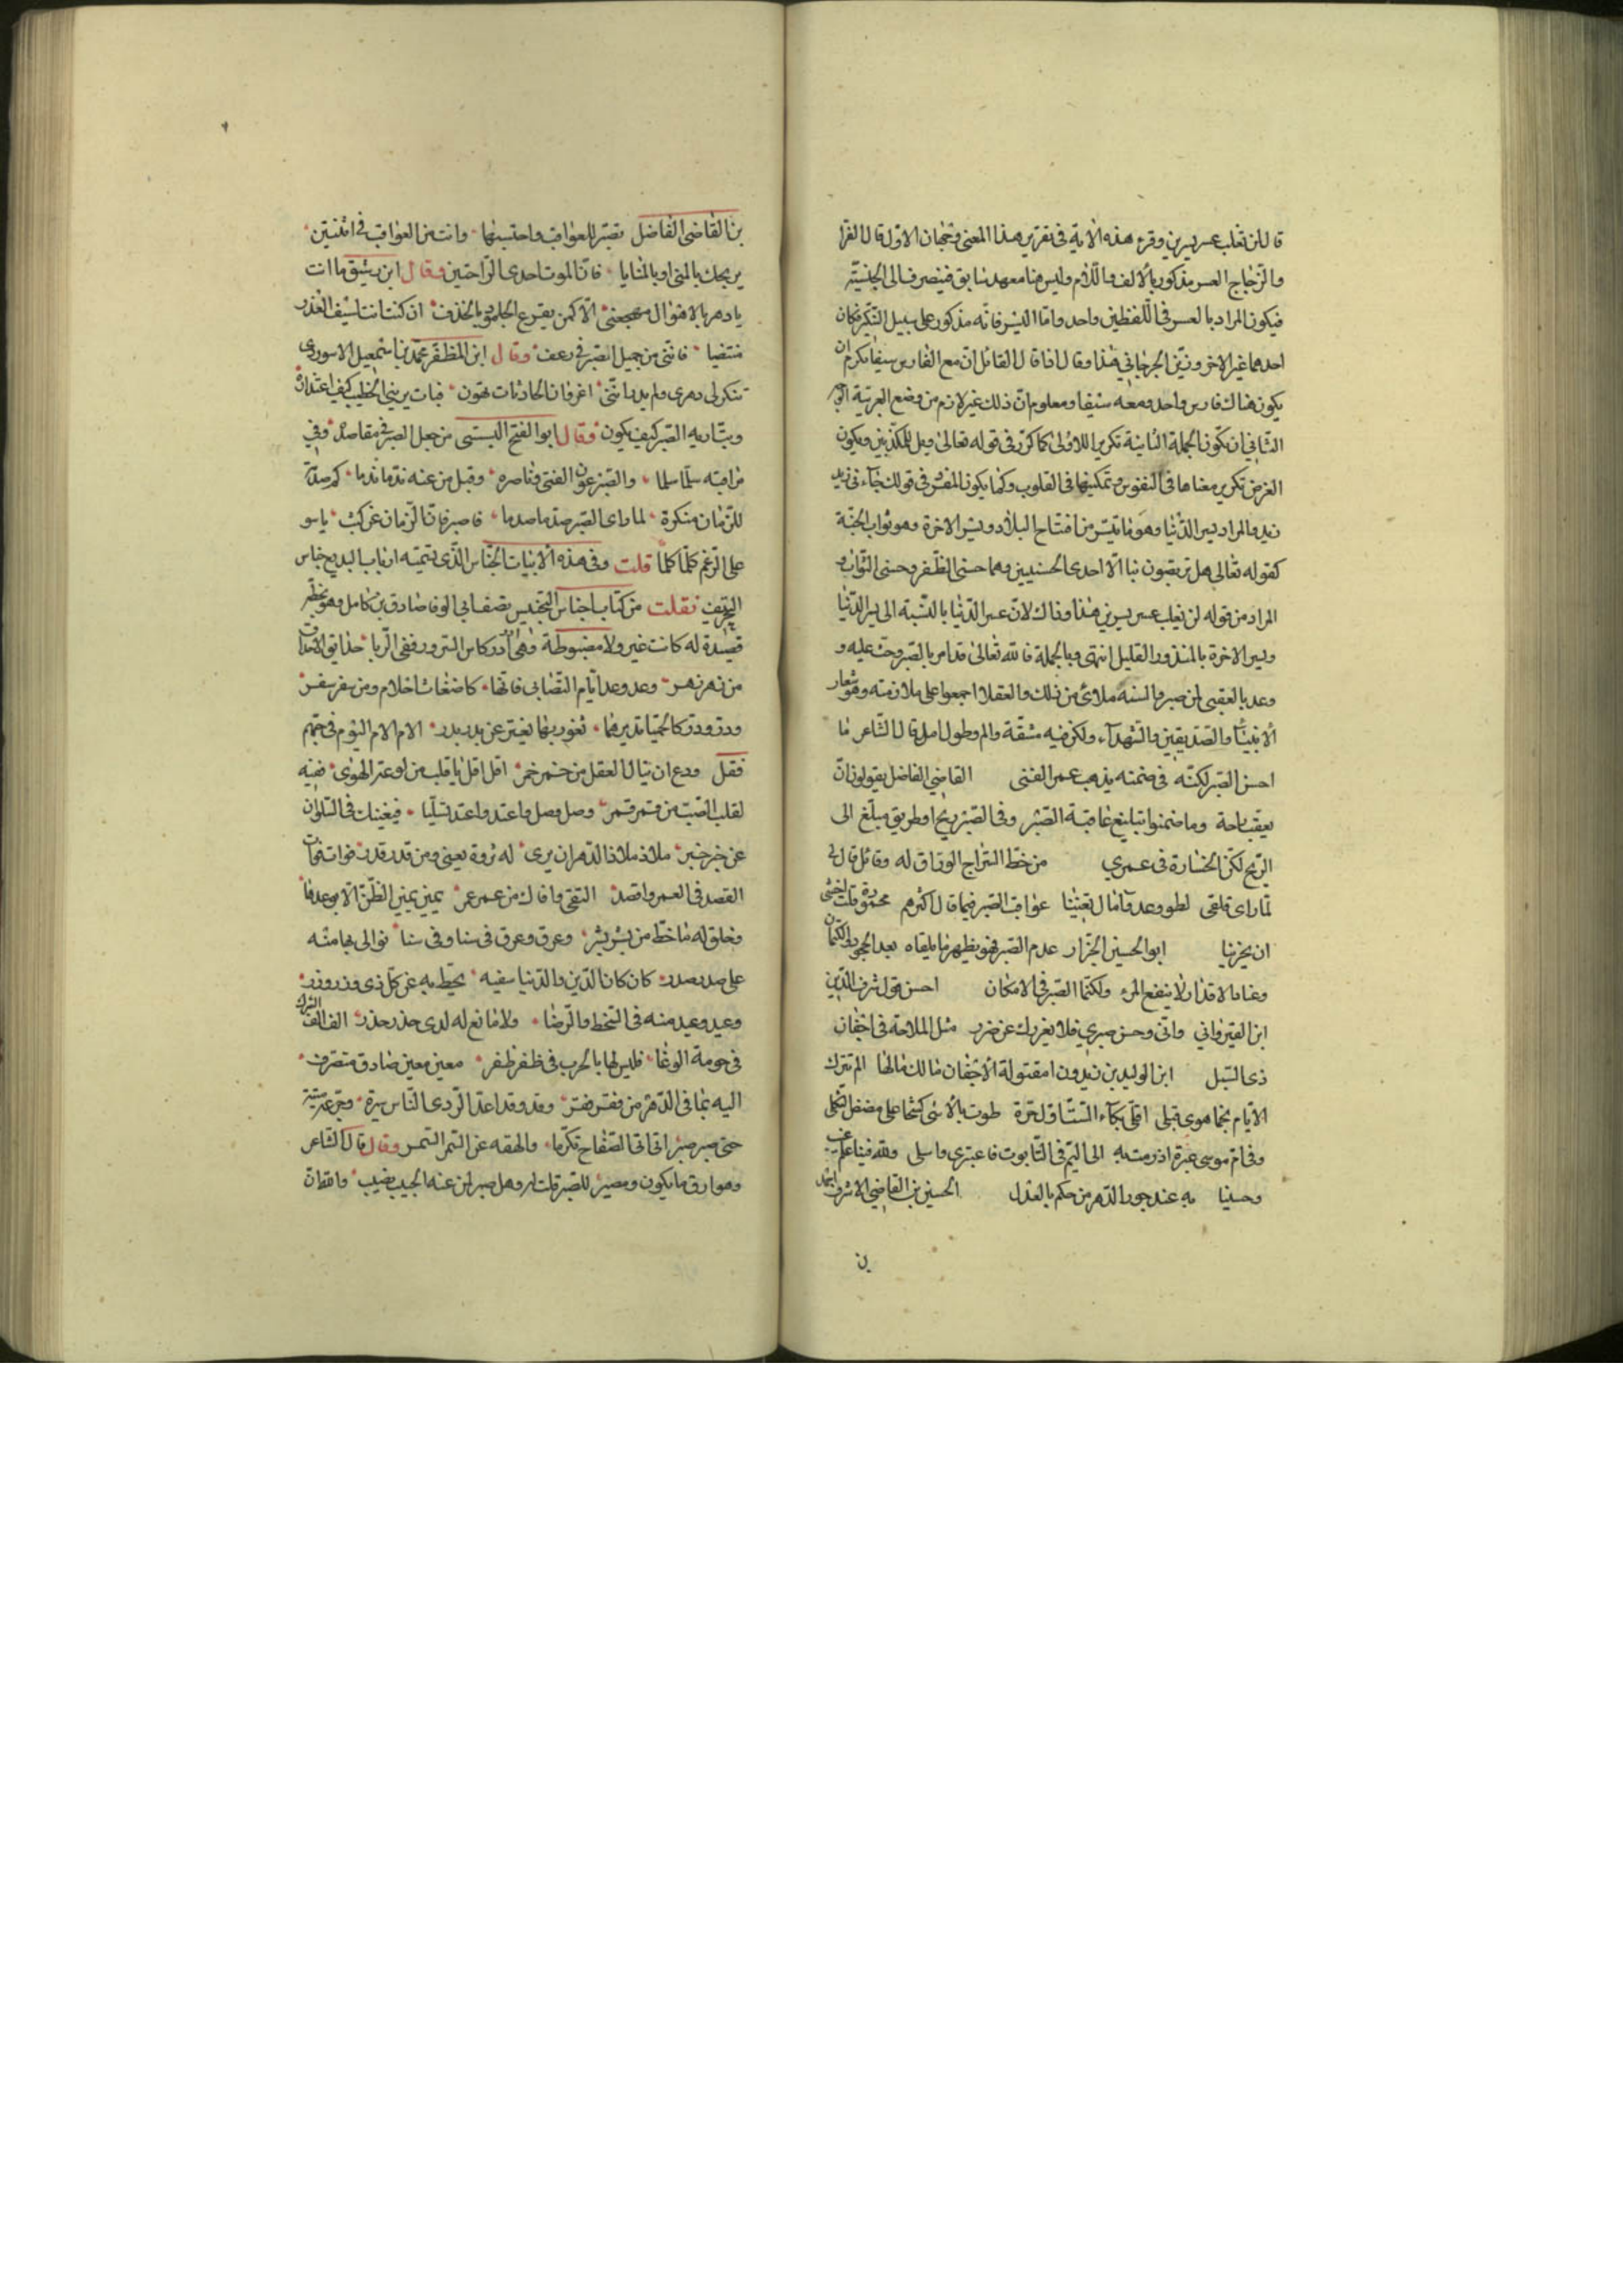 قال لن يغلب عسر يسرين وقرء هذه الاية فى تقرير هذا المعنى وجهان الاول قال الفرا
والزجاج العسر مذكور بالالف واللام وليس هنا معهود سابق فينصرف الى الجنسية
فيكون المراد بالعسر فى اللفظين واحد واما اليسر فانه مذكور على سبيل التنكير فكان
احدهما غير الاخر وزيّف الجرجاني هذا وقال اذا قال القائل ان مع الفارس سيفا يكرم ان
يكون هناك فارس واحد ومعه سيفا ومعلوم ان ذلك غير لازم من وضع العربية
الثاني ان تكون الجملة الثانية تكريرا للاولى كما كرر فى قوله تعالى ويل للمكذبين ويكون
الغرض تكرير معناها فى النفوس وتمكينها فى القلوب وكما يكون المفرد فى قولك جاءنى زيد
زيد والمراد بيسر الدنيا وهو ما تيسر من افتتاح البلاد ويسر الاخرة وهو ثواب الجنة
كقوله تعالى هل تربصون بنا الا احدى الحسنيين وهما حسنى الظفر وحسنى الثواب و
المراد من قوله لن يغلب عسر يسرين هذا وذاك لان عسر الدنيا بالنسبة الى يسر الدنيا
ويسر الاخرة بالمنذور القليل انتهى وبالجملة فالله تعالى قد امر بالصبر وحث عليه و
وعد بالعقبى لمن صبر والسنه ملائ من ذلك والعقلا اجمعوا على ملازمته وهو شعار
الانبيا والصديقين والشهداء ولكن فيه مشقة والم وطول امل قال الشاعر ما
احسن الصبر لكنه فى ضمنه يذهب عمر الفتى القاضي الفاضل يقولون ان
يعقب راحة وما ضمنوا تبليغ عاقبة الصبر وفى الصبر ربح او طريق مبلغ الى
الربح لكن الخسارة فى عمري من خط السراج الوراق له وقائل قال لى
لما راى قلقى لطول وعد وآمال تعنينا عواقب الصبر فيما قال اكثرهم محمودة قلت اخشى
ان يخزينا ابو الحسين الجزار عدم الصبر فهو يظهر ما يلقاه بعد الجحود والكتمان
وعناد الاقدار لا ينفع المرء ولكنما الصبر فى الامكان احسن قول شرف الدين
ابن القيرواني واني وحسن صبري فلا يغررك عن ضرر مثل الملاحة فى اجفان
ذى السبل ابن الوليد بن زيدون امقتولة الاجفان مالك والها الم ترك
الايام نجما هوى قبلى اقلى بكاء لست اول حرة طوت بالاسى كشحا على مضض الثكل
وفى ام موسى عبرة اذ رمت به الى اليم فى التابوت فاعتبرى واسلى ولله فينا علم غيب
وحسبنا به عند جور الدهر من حكم بالعدل الحسين بن القاضي الاشرف احمد
بن
بن القاضي الفاضل تصبر للعواقب واحتسبها وانت من العواقب فى اثنتين
يريحك بالمنى او بالمنايا فان الموت احدى الراحتين وقال ابن رشيق ما انت
يا دهر بالاهوال مفجعنى الا كمن يقرع الجلمود بالخذف ان كنت انت لسيف الغدر
منتضيا فاننى من جميل الصبر فى زعف وقال ابن المظفر محمد بن اسمعيل الاسوردى
تنكر لى دهرى ولم يدر اننى اعز وان الحادثات تهون فبات يرينى الخطب كيف اعتداؤه
وبت اريه الصبر كيف يكون وقال ابو الفتح البستى من جعل الصبر فى مقاصده وفى
مراقبه سلما سلما والصبر عون الفتى وناصره وقبل من عنه ندما ندما كم صدمة
للزمان منكرة لما راى الصبر صدها صدما فاصبر فان الزمان عن كثب ياسو
على الرغم كلما كلما قلت وفى هذه الابيات الجناس الذى يسميه ارباب البديع جناس
التحريف نقلت من كتاب اجناس التجنيس تصنف ابى الوفا صادق بن كامل وهو بخطه
قصيدة له كانت غير ولا مضبوطة وهى ادر كاس السرور ففى الربا حدائق الاحداق
من زهر زهر وعد وعد ايام التصابى فانها كاضغاث احلام ومن سفر سفر
ودر ودر كالحميا تديرها ثغور بها تفتر عن بدر بدر الام الام اليوم فى حبهم
فقل ودع ان ينال العقل من خمر خمر اقل اقل يا قلب من لوعة الهوى ففيه
لقلب الصب من قمر قمر وصل وصل واعتد واعتد تسليا فيغنيك فى السلوان
عن خبر خبر ملاذ ملاذ الدهر ان يرى له ثروة يعنى ومن قدر قدر فوات فوات
القصد فى العمر واقصد التقى وافاك من عمر عمر يمين يمين الظن الا بوعدها
وخلق له ما خط من بشر بشر وعرق وعرق فى سنا وفى سنا توالى بها منه
على صدر صدر كان كان الدين والدنيا سفيه يحط به عن كل ذى وزر وزر
وعيد وعيد منه فى السخط والرضا ولا مانع له لدى حذر حذر الف الف الترك
فى حومة الوغا فليس لها بالحرب فى ظفر ظفر معين معين صادق متصرف
اليه بما فى الدهر من فقر فقر وقد وقد اعد الردى الناس سيرة
حتى صبر صبر اتى اتى الصفاح تكرما والحقه عن السمر السمر وقال قال الشاعر
وهوا رق ما يكون ومصير للصبر قلت له وهل صبر لمن عنه الحبيب يغيب والله ان